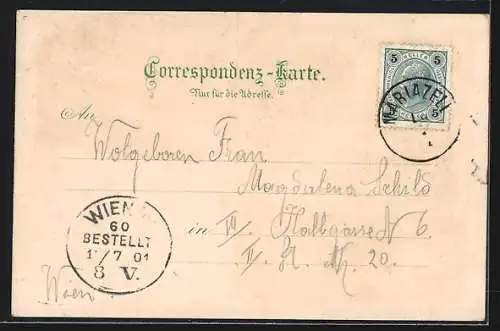 Correspondenz-Karte.
Nur für die Adresse.
5 5
5
MARIAZELL
An
Wolgeboren Frau
Magdalena Schild
in III Hallgasse No 6
II. St. Th. 20.
WIEN
60
BESTELLT
7 01
8 V.
Wien